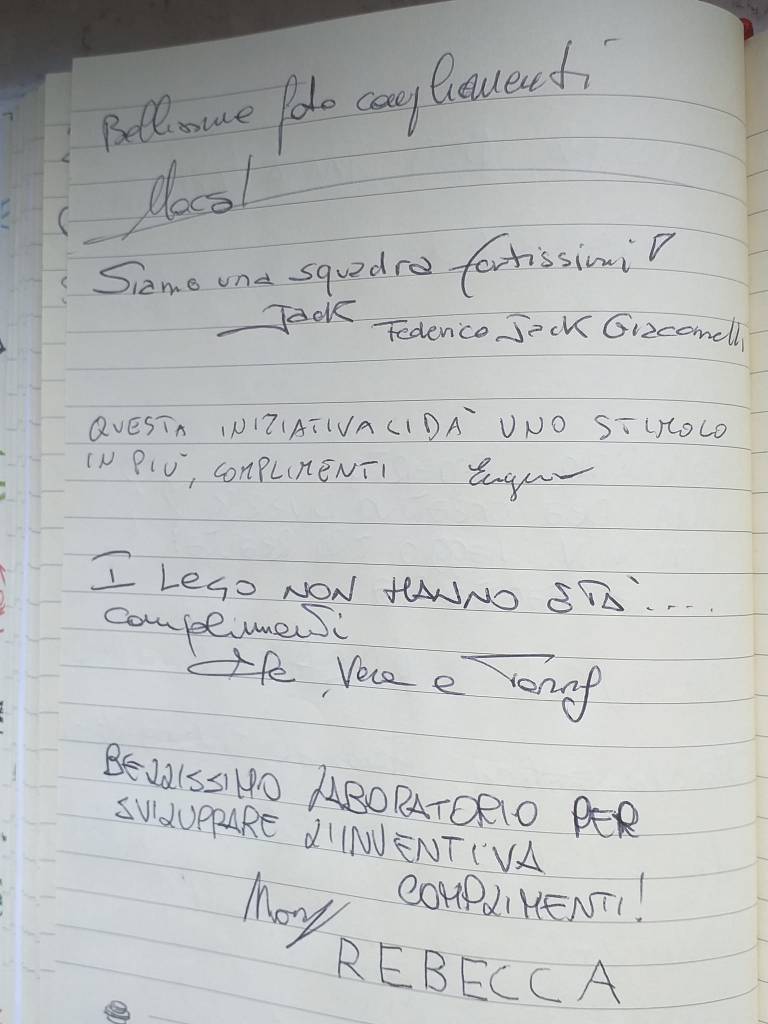 Bellissime foto complimenti
Siamo una squadra fortissimi
Jack
Federico Jack Giacomelli
QUESTA INIZIATIVA CI DÀ UNO STIMOLO
IN PIÙ, COMPLIMENTI
I LEGO NON HANNO ETÀ....
complimenti
Vera e
BELLISSIMO LABORATORIO PER
SVILUPPARE L'INVENTIVA
COMPLIMENTI!
REBECCA